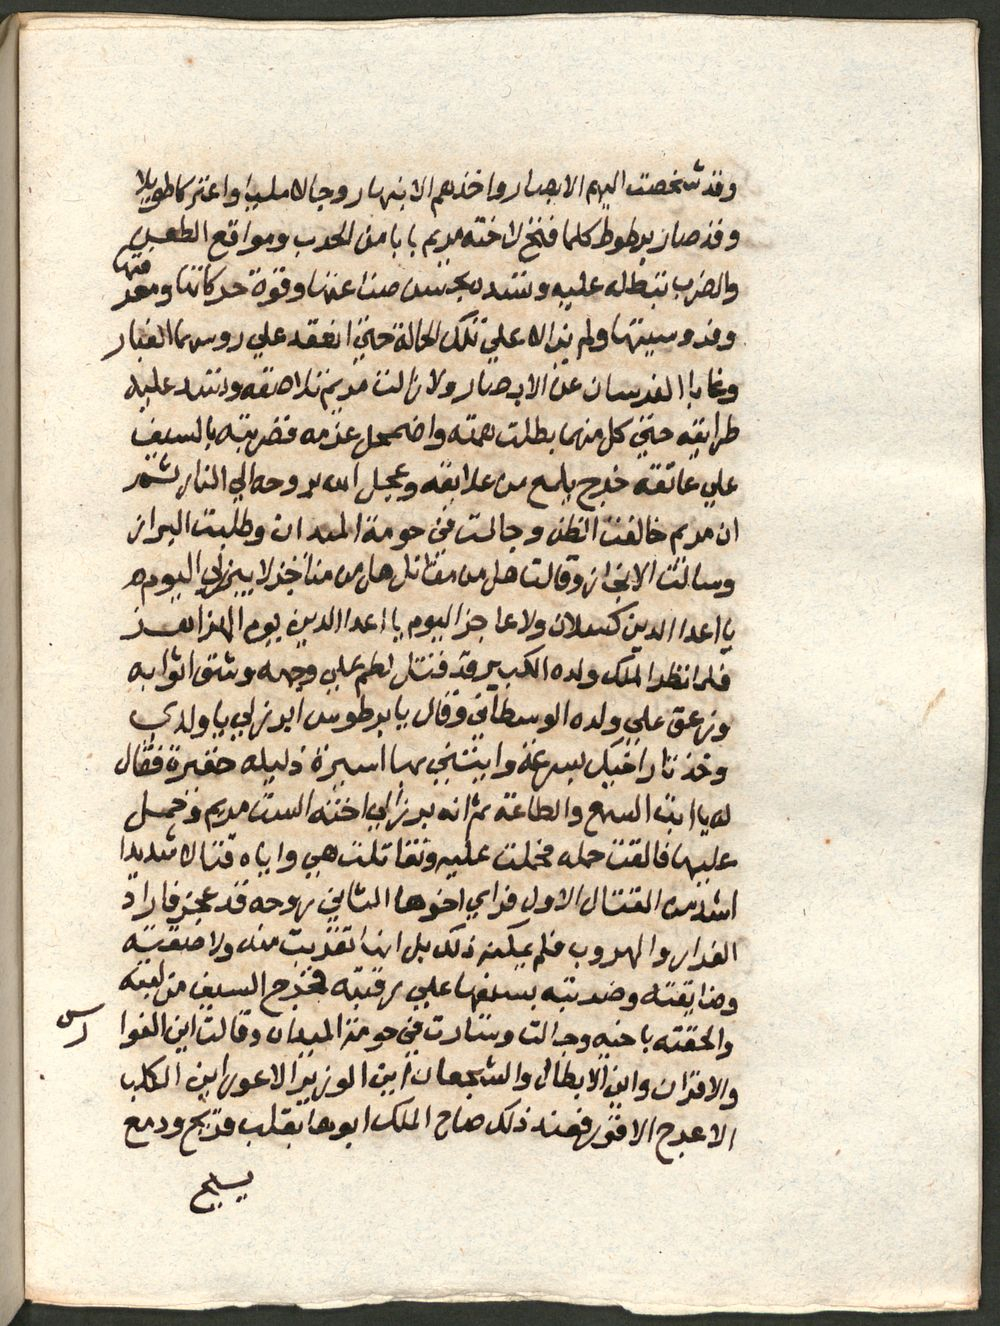 وقد شخصت اليهم الابصار واخذهم الانبهار وجالا مليا واعتركا طويلا
وقد صار برطوط كلما فتح لاخته مريم بابا من الحرب ومواقع الطعن
والضرب تبطله عليه وتسده بحسن صناعتها وقوة حركاتها ومعرفتها
وفروسيتها ولم يزالا علي تلك الحالة حتي انعقد علي روسهما الغبار
وغابا الفرسان عن الابصار ولا زالت مريم تلاصقه وتسد عليه
طرايقه حتي كل منهما بطلت همته واضمحل عزمه فضربته بالسيف
علي عاتقه خرج يلمع من علايقه وعجل الله بروحه الي النار ثم
ان مريم خالفت الظن وجالت في حومة الميدان وطلبت البراز
وسالت الانجاز وقالت هل من مقاتل هل من مناجز لا يبرز لي اليوم
يا اعدا الدين كسلان ولا عاجز اليوم يا اعدا الدين يوم الهزاهز
فلما نظر الملك ولده الكبير قد قتل لطم علي وجهه وشق اثوابه
وزعق علي ولده الوسطاني وقال يا برطوس ابرز لي يا ولدي
وخذ ثار اخيك بسرعة وايتني بها اسيرة ذليله حقيرة فقال
له يا ابت السمع والطاعة ثم انه برز الي اخته الست مريم وحمل
عليها فالقت حمله فحملت عليه وتقاتلت هي واياه قتالا شديدا
اشد من القتال الاول فراي اخوها الثاني روحه قد عجز فاراد
الفرار والهروب فلم يمكنه ذلك بل انها تقربت منه ولاصقته
وضايقته وضربته بسيفها علي رقبته فخرج السيف من لبته
والحقته باخيه وجالت وسارت في حومة الميدان وقالت اين الفوا
رس
والاقران واين الابطال والشجعان اين الوزير الاعور اين الكلب
الاعرج الاقور فعند ذلك صاح الملك ابوها بقلب قريح ودمع
يسيح